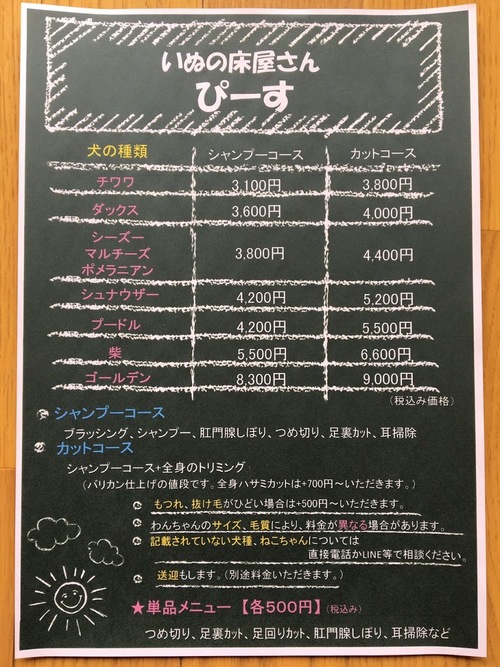 いぬの床屋さん
ぴーす
犬の種類 シャンプーコース カットコース
チワワ 3,100円 3,800円
ダックス 3,600円 4,000円
シーズー
マルチーズ 3,800円 4,400円
ポメラニアン
シュナウザー 4,200円 5,200円
プードル 4,200円 5,500円
柴 5,500円 6,600円
ゴールデン 8,300円 9,000円
(税込み価格)
シャンプーコース
ブラッシング、シャンプー、肛門腺しぼり、つめ切り、足裏カット、耳掃除
カットコース
シャンプーコース+全身のトリミング
(バリカン仕上げの値段です。全身ハサミカットは+700円~いただきます。)
もつれ、抜け毛がひどい場合は+500円~いただきます。
わんちゃんのサイズ、毛質により、料金が異なる場合があります。
記載されていない犬種、ねこちゃんについては
直接電話かLINE等で相談ください。
送迎もします。(別途料金いただきます。)
★単品メニュー【各500円】(税込み)
つめ切り、足裏カット、足回りカット、肛門腺しぼり、耳掃除など